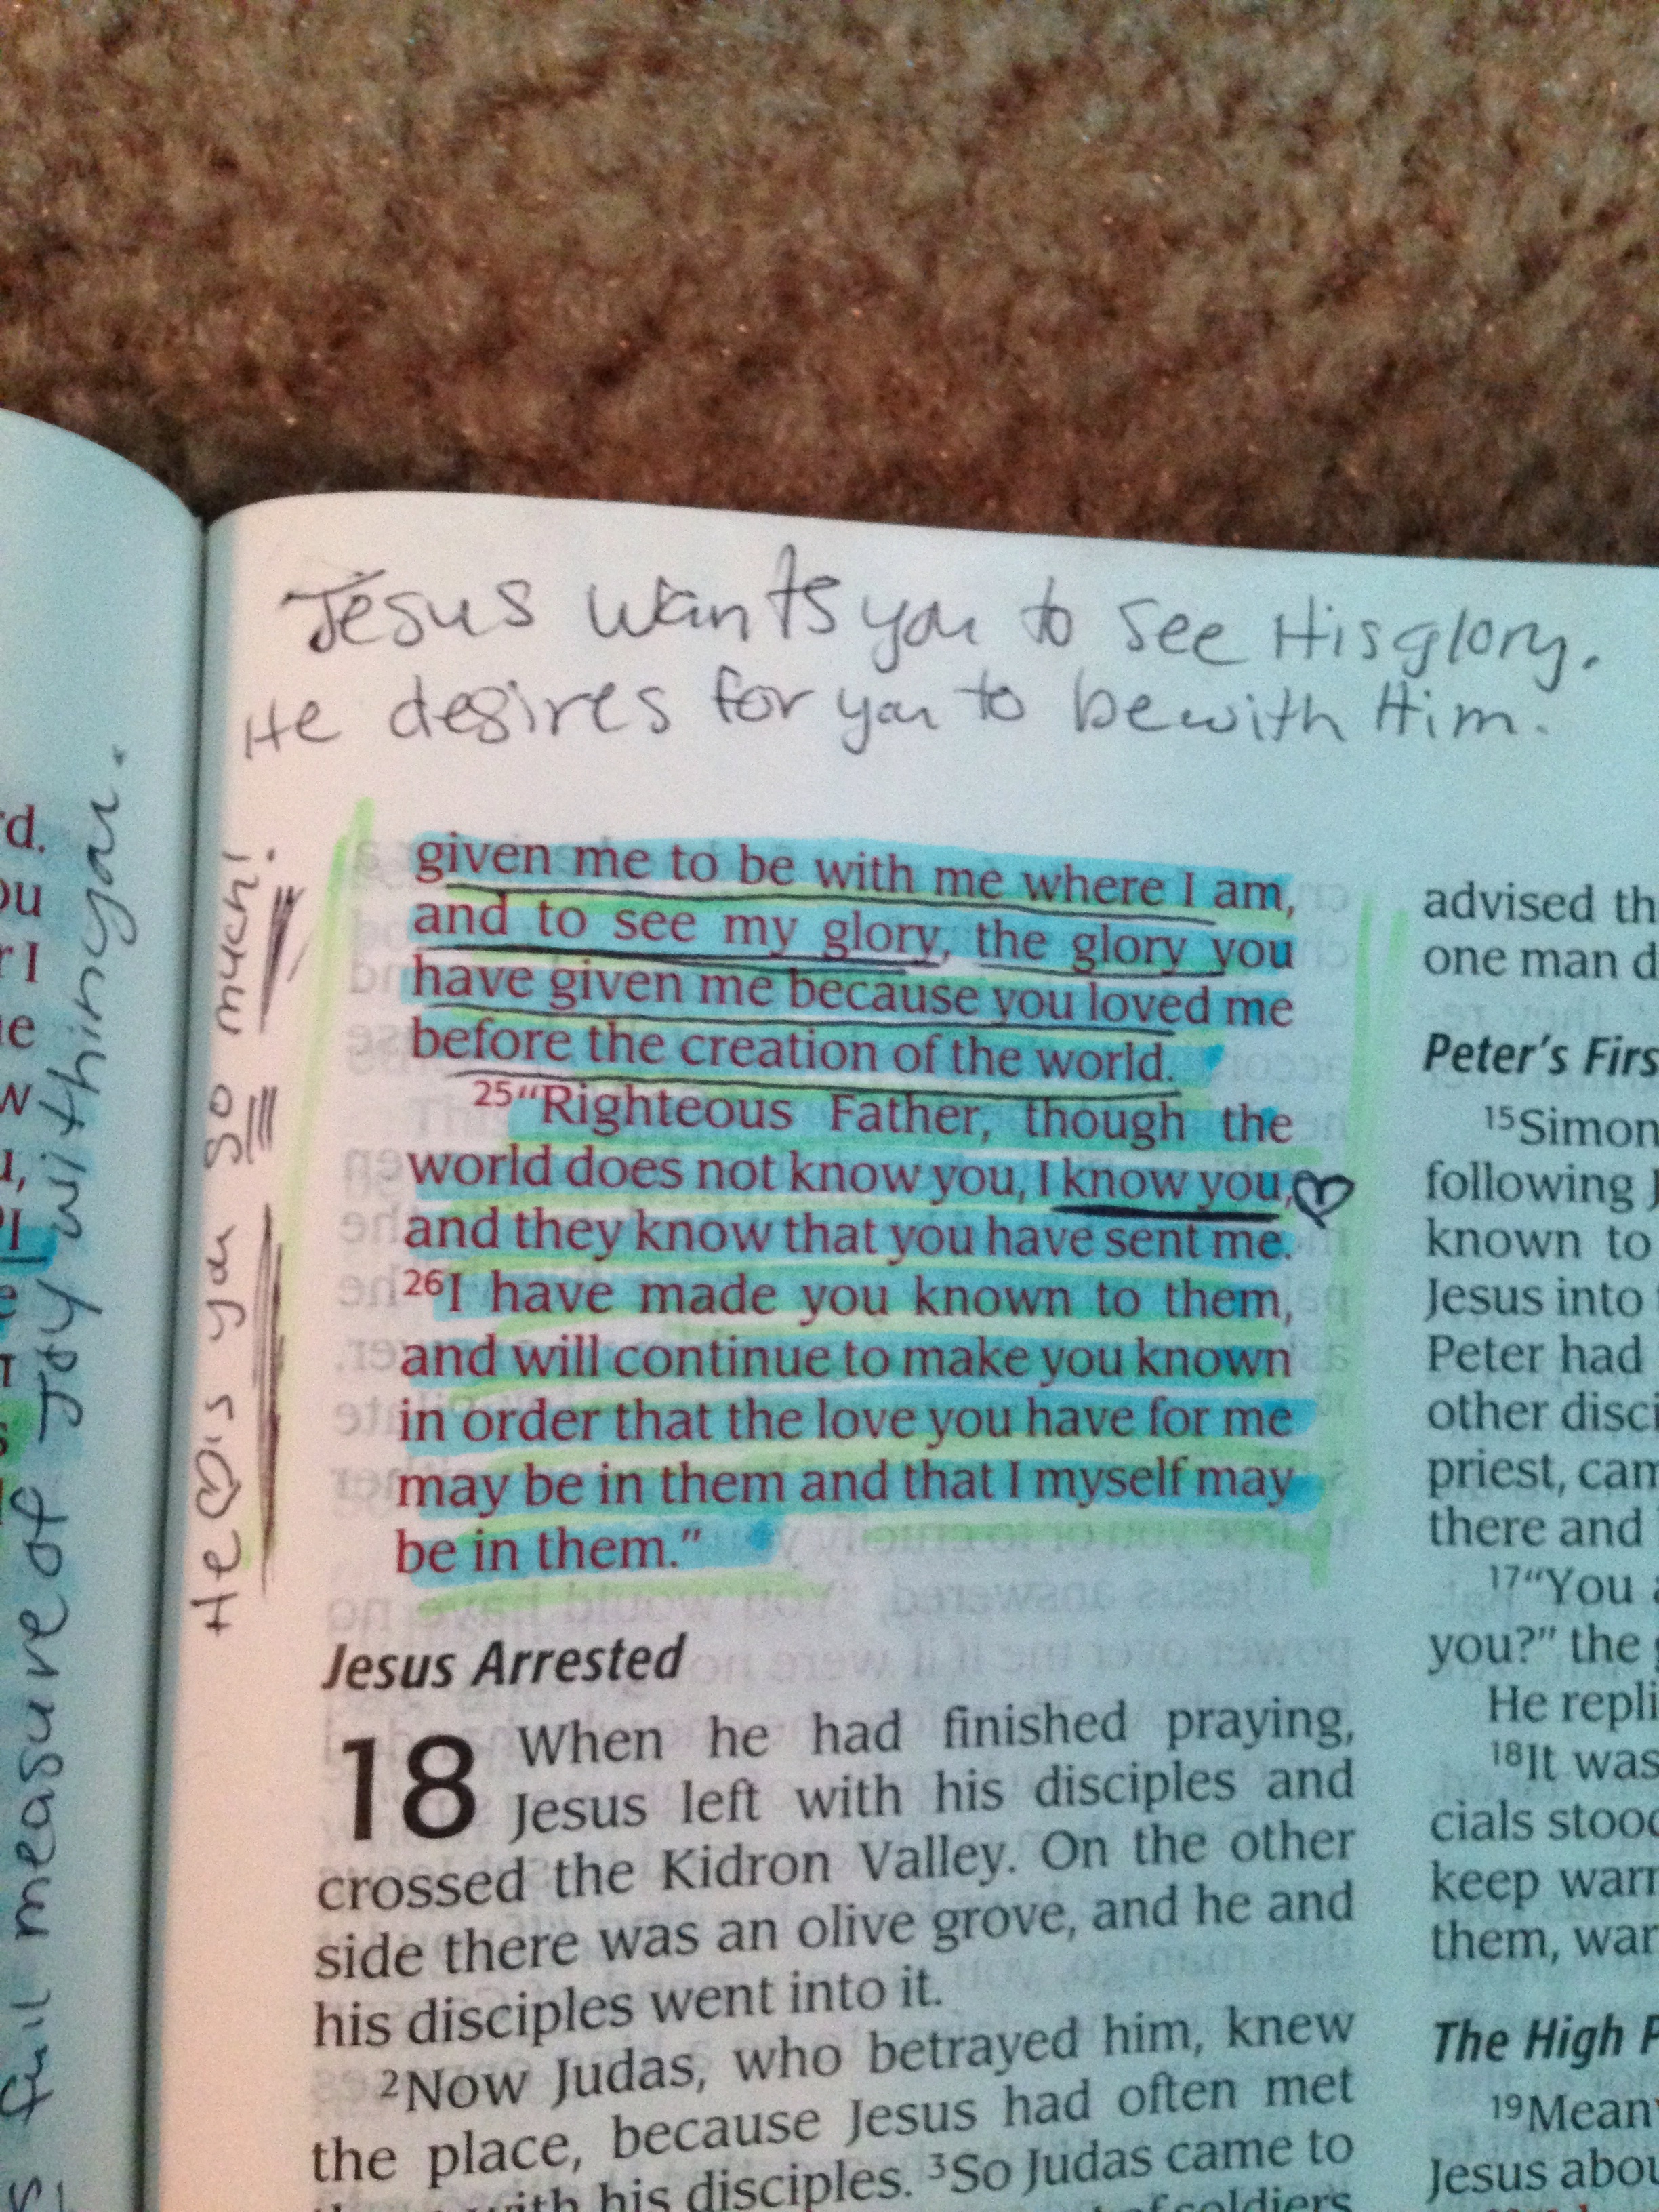 Jesus wants you to see His glory.
He desires for you to be with Him.
full measure of Joy within you.
He ♡'s you so much!
rd.
ou
r I
given me to be with me where I am,
and to see my glory, the glory you
have given me because you loved me
before the creation of the world.
25“Righteous Father, though the
world does not know you, I know you, ♡
and they know that you have sent me.
26I have made you known to them,
and will continue to make you known
in order that the love you have for me
may be in them and that I myself may
be in them.”
Jesus Arrested
18 When he had finished praying,
Jesus left with his disciples and
crossed the Kidron Valley. On the other
side there was an olive grove, and he and
his disciples went into it.
2Now Judas, who betrayed him, knew
the place, because Jesus had often met
with his disciples. 3So Judas came to
of soldiers
advised th
one man d
Peter’s Firs
15Simon
following J
known to
Jesus into
Peter had
other disci
priest, cam
there and
17“You a
you?” the g
He repli
18It was
cials stood
keep warm
them, war
The High P
19Mean
Jesus abou